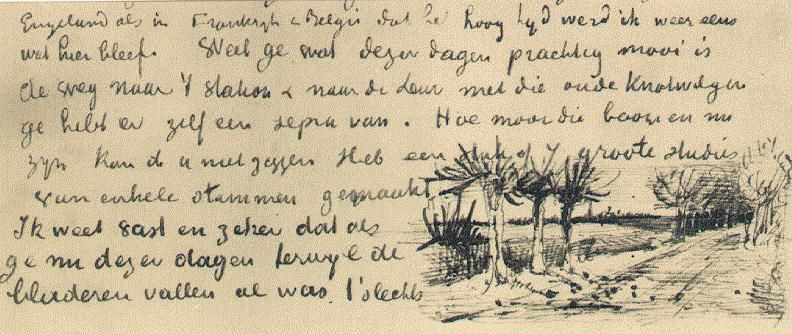 Engeland als in Frankrijk & België dat het hoog tijd werd ik weer eens
wat hier bleef. Weet ge wat dezer dagen prachtig mooi is
de weg naar 't station & naar de Leur met die oude Knotwilgen
ge hebt er zelf een sepia van. Hoe mooi die boomen nu
zijn kan ik u niet zeggen Heb een stuk of 7 groote studies
van enkele stammen gemaakt
Ik weet vast en zeker dat als
ge nu dezer dagen terwijl de
bladeren vallen al was 't slechts